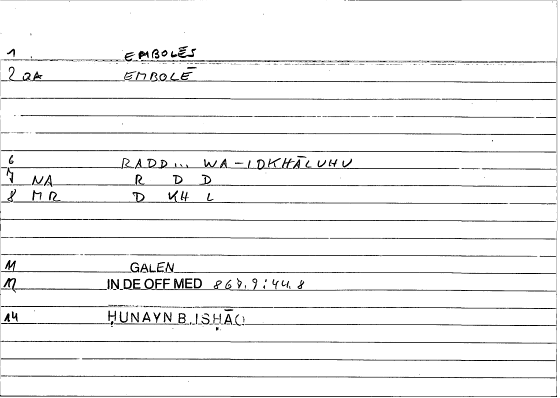 1 . EMBOLĒS
2 QA EMBOLĒ
6 RADD... WA-IDKHĀLUHU
7 NA R D D
8 MR D KH L
11 GALEN
12 IN DE OFF MED 868.9:44.8
14 ḤUNAYN B. ISḤĀQ